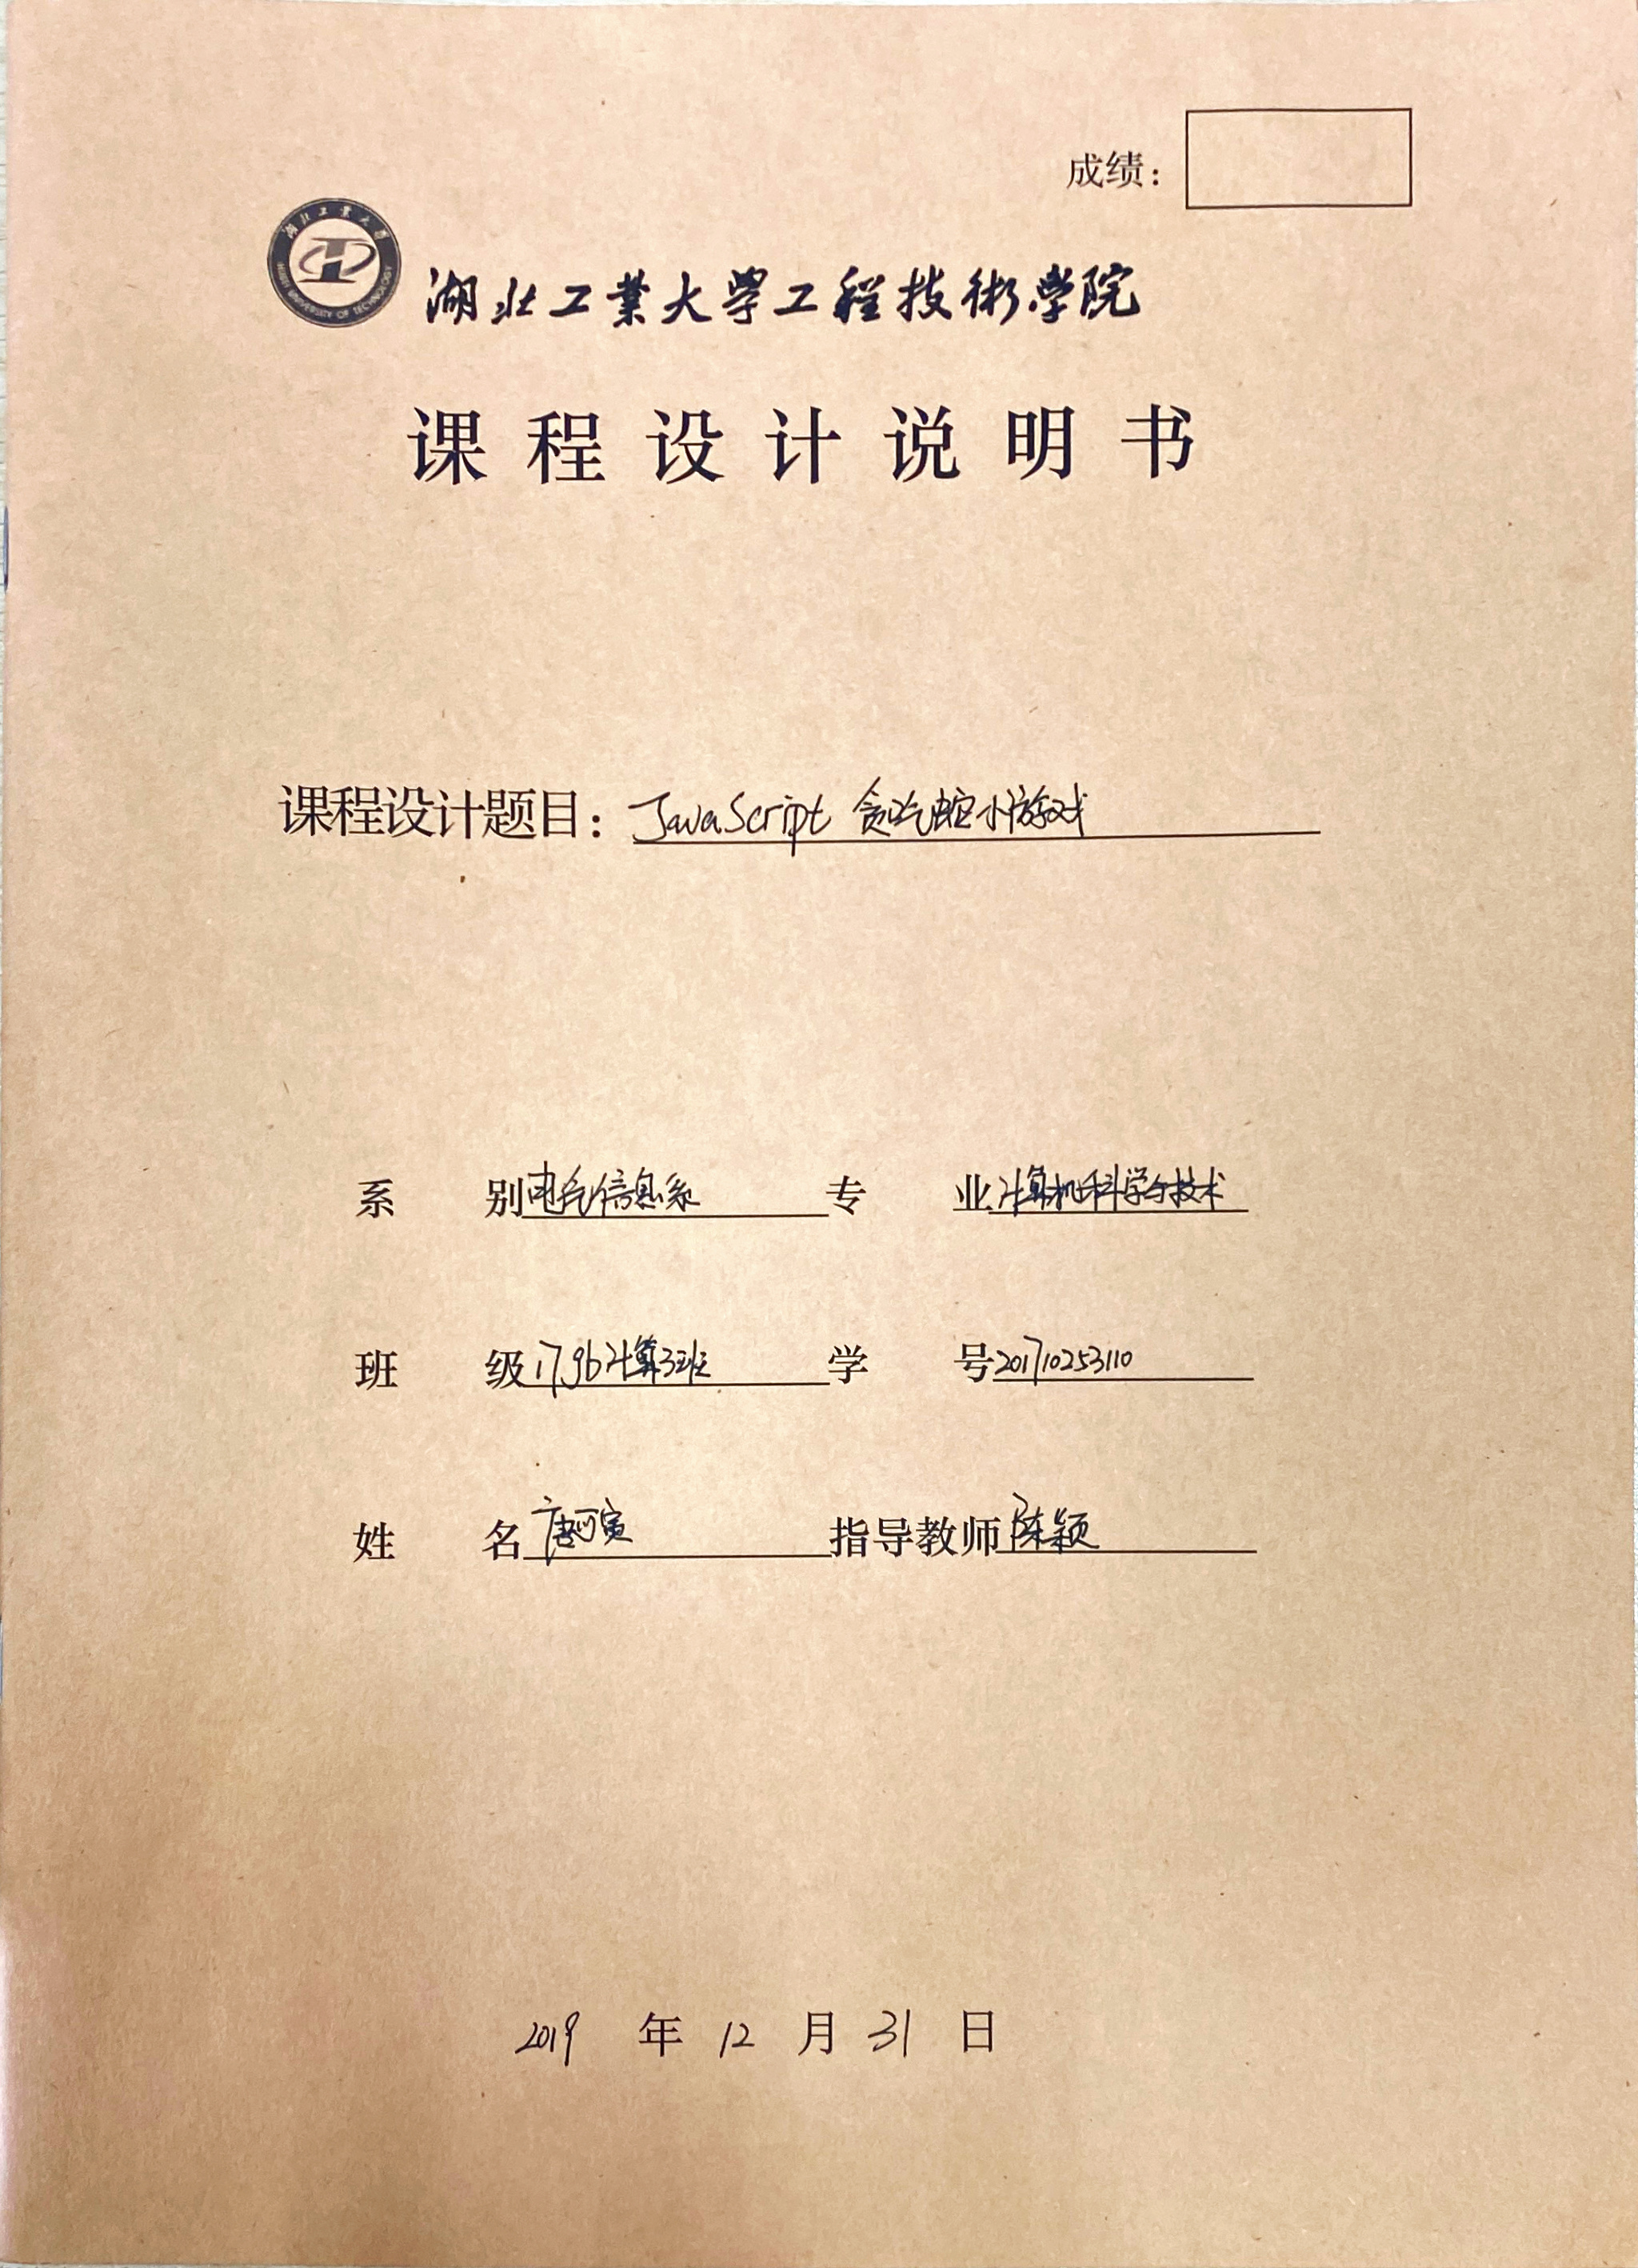 成绩:
湖北工業大学
HUBEI UNIVERSITY OF TECHNOLOGY
湖北工業大學工程技術学院
课程设计说明书
课程设计题目: JavaScript 贪吃蛇小游戏
系 别 电气信息系 专 业 计算机科学与技术
班 级 17gb计算3班 学 号 201710253110
姓 名 唐可寅 指导教师 陈颖
2019 年 12 月 31 日